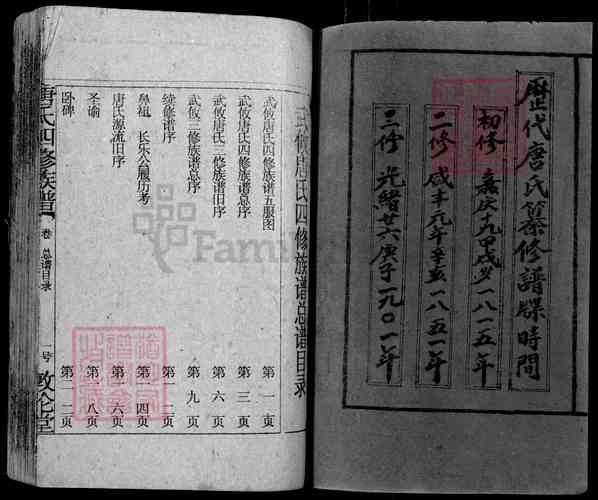 歷代唐氏纂修譜牒時間
初修 嘉庆十九甲戌岁一八一五年
二修 咸丰元年辛亥一八五一年
三修 光緒廿六庚子一九〇一年
武攸唐氏四修族譜总譜目录
武攸唐氏四修族谱五服图 第一页
武攸唐氏四修族谱总序 第三页
武攸唐氏三修族谱旧序 第六页
武攸三修族谱总序 第九页
续修谱序 第一二页
鼻祖 长乐公履历考 第一四页
唐氏源流旧序 第一六页
圣谕 第一八页
卧碑 第二二页
唐氏四修族譜 卷 总谱目录 一号 敦伦堂
FamilySearch